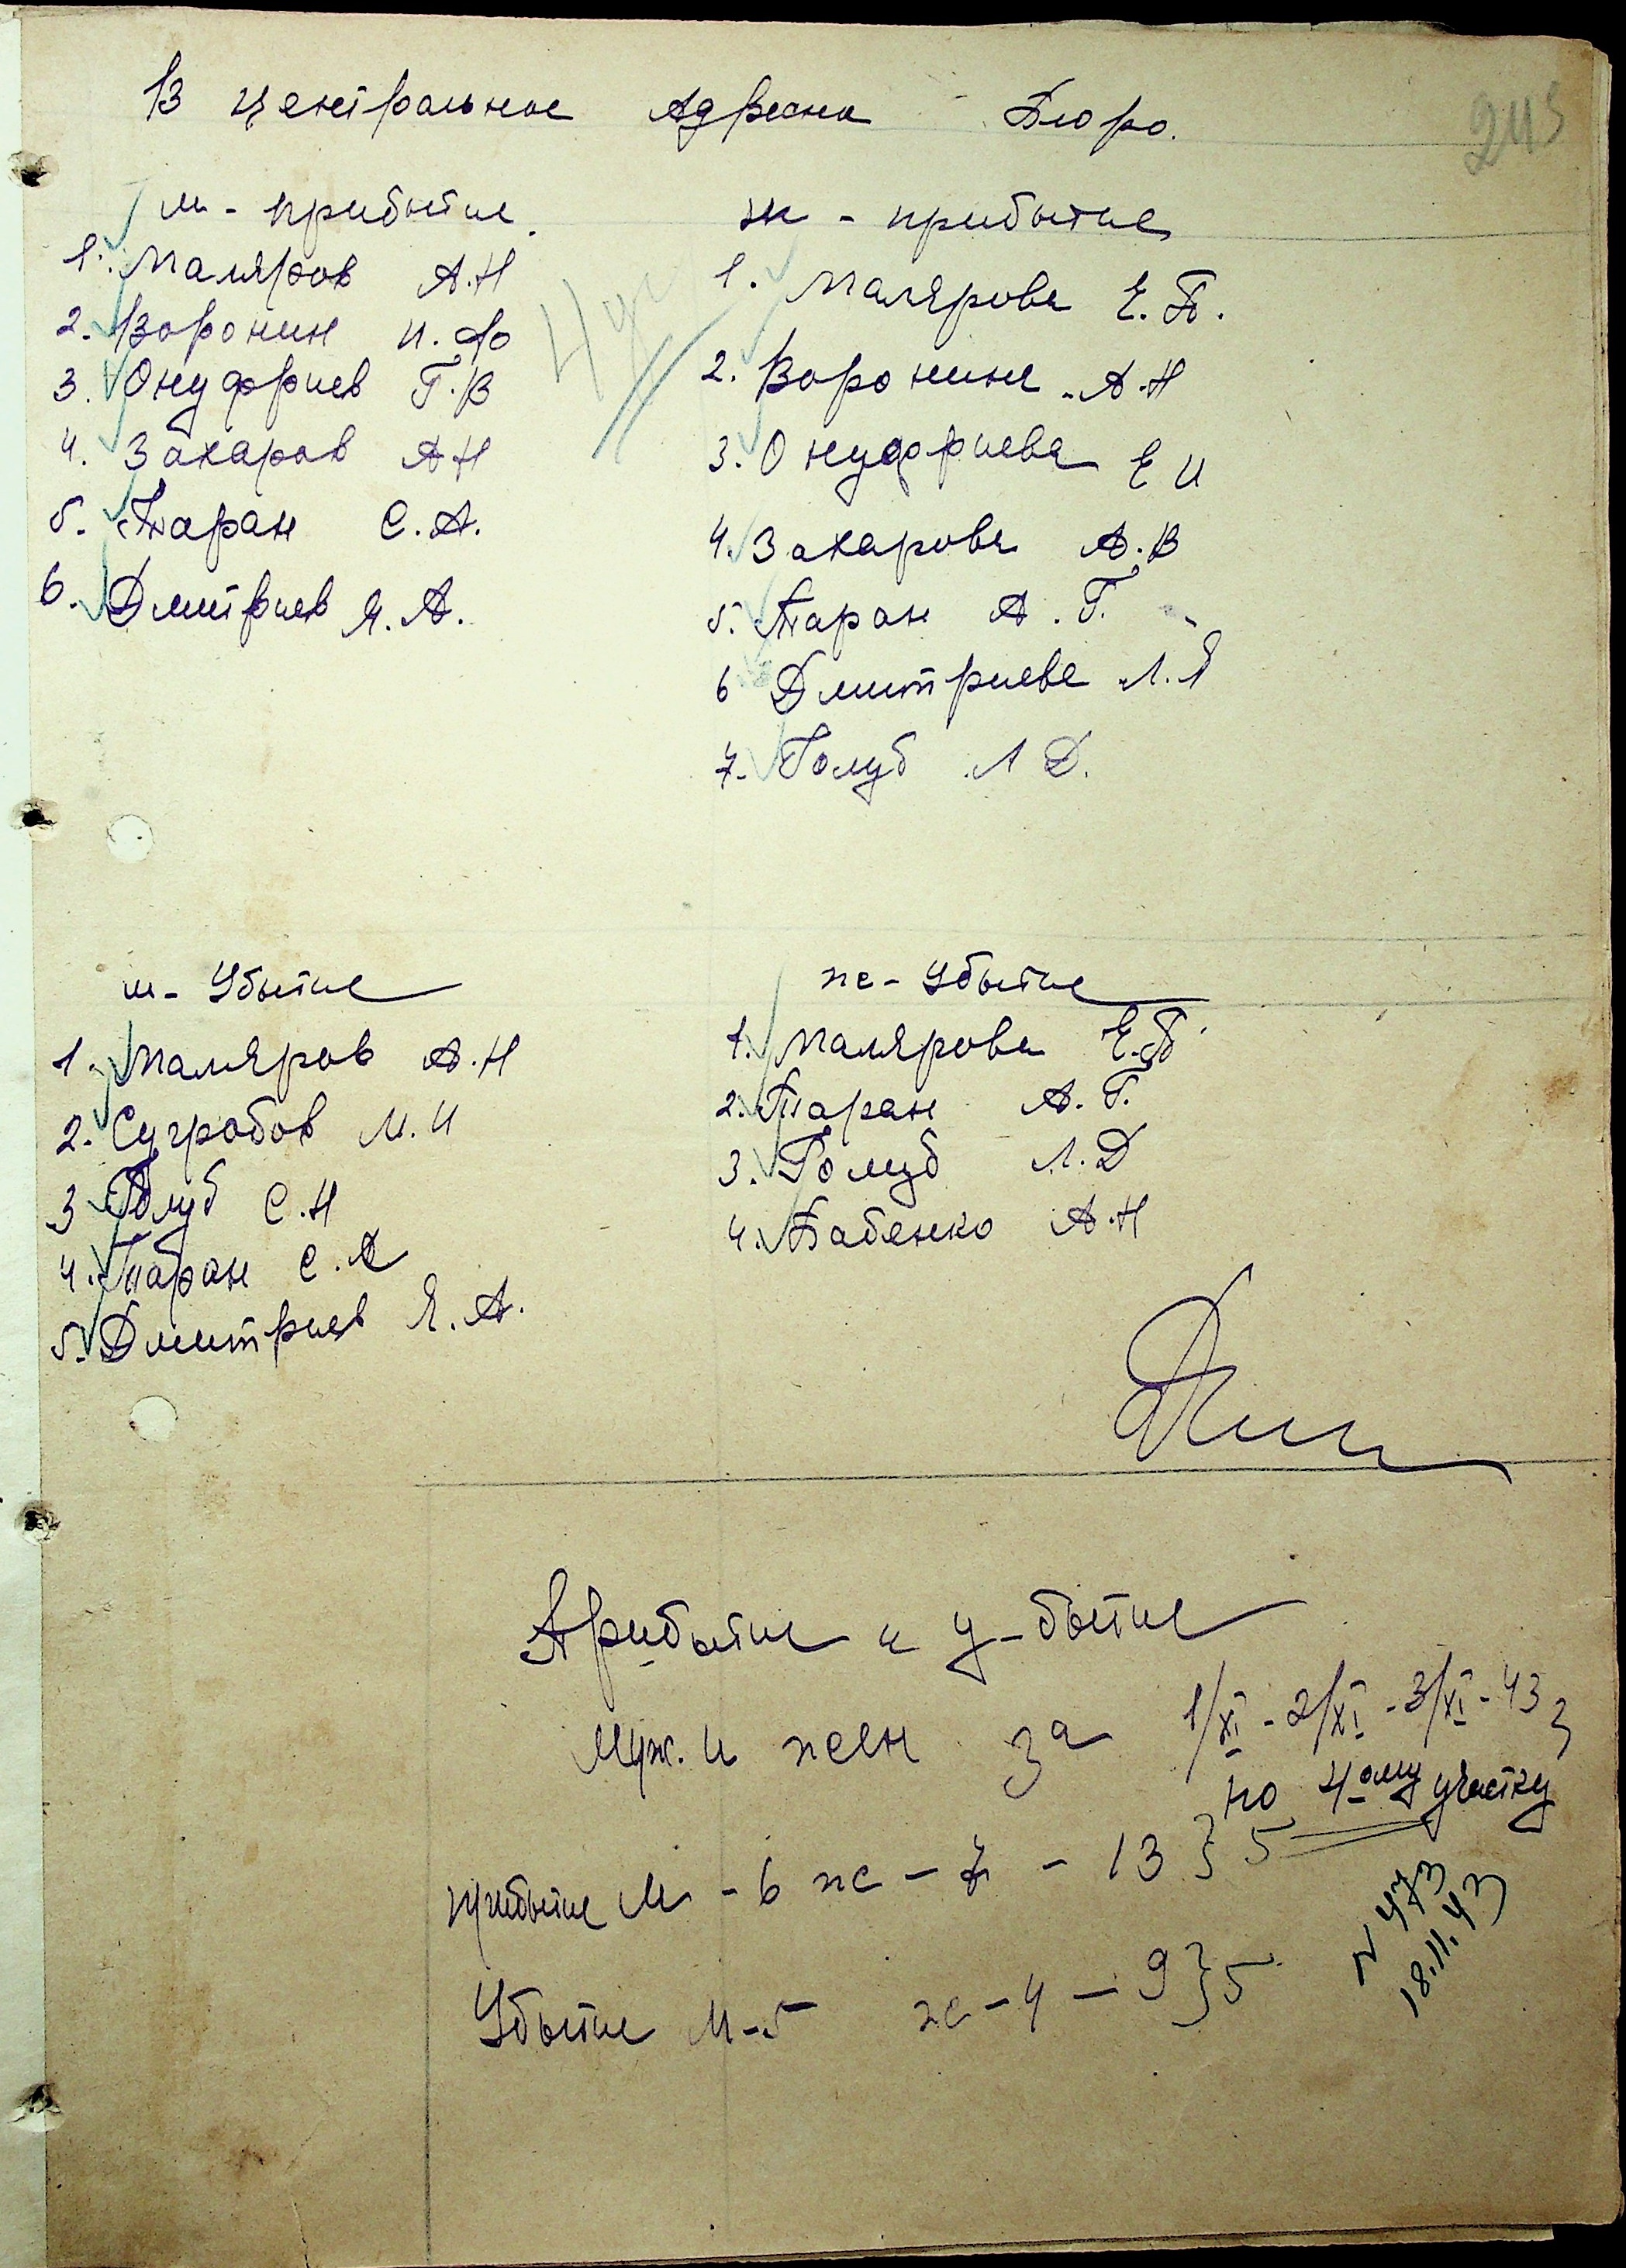 В центральное Адресна Бюро.
245
м - прибытие.
1. Маляров А.Н
2. Воронин И.Ф
3. Онуфриев Г.В
4. Захаров А Н
5. Таран С.А.
6. Дмитриев Я.А.
ж - прибытие
1. Малярова Е.П.
2. Воронина А.Н
3. Онуфриева Е И
4. Захарова А.В
5. Таран А.Г.
6 Дмитриева Л.Я
7. Голуб Л Д.
м - Убытие
1. Маляров А.Н
2. Суградов М.И
3 Голуб С.Н
4. Таран С.А
5. Дмитриев Я.А.
ж - Убытие
1. Малярова Е.П.
2. Таран А.Г.
3. Голуб Л.Д
4. Бабенко А.Н
Прибытие и у-бытие
Муж. и жен за 1/XI - 2/XI - 3/XI - 43 г
по 4ому участку
прибытие М - 6 ж - 7 - 13 } 5
Убытие М - 5 ж - 4 - 9 } 5
N 473
18.11.43